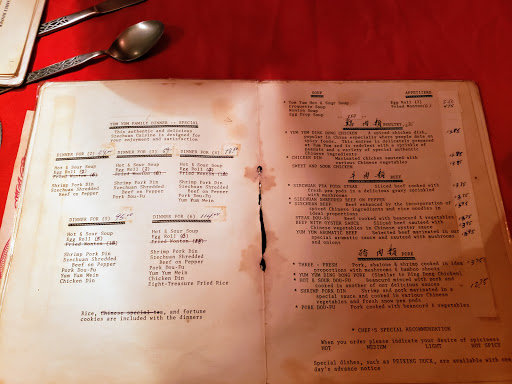 YUM YUM FAMILY DINNER -- SPECIAL
This authentic and delicious
Szechuan Cuisine is designed for
your enjoyment and satisfaction
DINNER FOR (2)
DINNER FOR (3)
DINNER FOR (4)
Hot & Sour Soup
Egg Roll (2)
Fried Wonton
Shrimp Pork Din
Szechuan Shredded
Beef on Pepper
Hot & Sour Soup
Egg Roll (3)
Fried Wonton
Shrimp Pork Din
Szechuan Shredded
Beef on Pepper
Pork Dou-Fu
Hot & Sour Soup
Egg Roll (4)
Fried Wonton
Shrimp Pork Din
Szechuan Shredded
Beef on Pepper
Pork Dou-Fu
Yum Yum Wein
DINNER FOR (5)
DINNER FOR (6)
Hot & Sour Soup
Egg Roll (5)
Fried Wonton
Shrimp Pork Din
Szechuan Shredded
Beef on Pepper
Pork Dou-Fu
Yum Yum Wein
Chicken Din
Hot & Sour Soup
Egg Roll (6)
Fried Wonton
Shrimp Pork Din
Szechuan Shredded
Beef on Pepper
Pork Dou-Fu
Yum Yum Wein
Chicken Din
Eight-Treasure Fried Rice
Rice, Chinese special tea, and fortune
cookies are included with the dinners
SOUP
APPETIZERS
* Yum Yum Hot & Sour Soup
Croquette Soup
Wonton Soup
Egg Drop Soup
Egg Roll (2)
Fried Wonton
POULTRY
* YUM YUM DING DONG CHICKEN A spiced chicken dish,
popular in China especially where people eat
* CHICKEN DIN Marinated chicken sauteed with
various Chinese vegetables
SWEET AND SOUR CHICKEN
牛肉類 BEEF
SZECHUAN PEA PODS STEAK Sliced beef cooked with
fresh pea pods in a delicious gravy sprinkled
with mushrooms
* SZECHUAN SHREDDED BEEF ON PEPPER
* SZECHUAN BEEF Beef enhanced by the incorporation of
spiced Chinese ingredients and rice noodles in
ideal proportions
STEAK DOU-FU Beef cooked with beancurd & vegetables
BEEF WITH OYSTER SAUCE Sliced beef sauteed with
Chinese vegetables in Chinese oyster sauce
YUM YUM AROMATIC BEEF Selected beef marinated in our
special aromatic sauce and sauteed with mushrooms
and onions
豬肉類 PORK
* YUM YUM DING DONG PORK (Similar to Ding Dong Chicken)
* HOT & SOUR DOU-FU Beancurd mixed with pork and
cooked in another of our delicious sauces
* SHRIMP PORK DIN Shrimp and pork marinated in
a special sauce and cooked in various Chinese
vegetables and fresh snow pea pods
* PORK DOU-FU Pork cooked with beancurd & vegetables
* CHEF'S SPECIAL RECOMMENDATION
When you order please indicate your desire of spiciness
HOT MEDIUM LIGHT NOT SPICY
Special dishes, such as PEKING DUCK, are available with one
day's advance notice